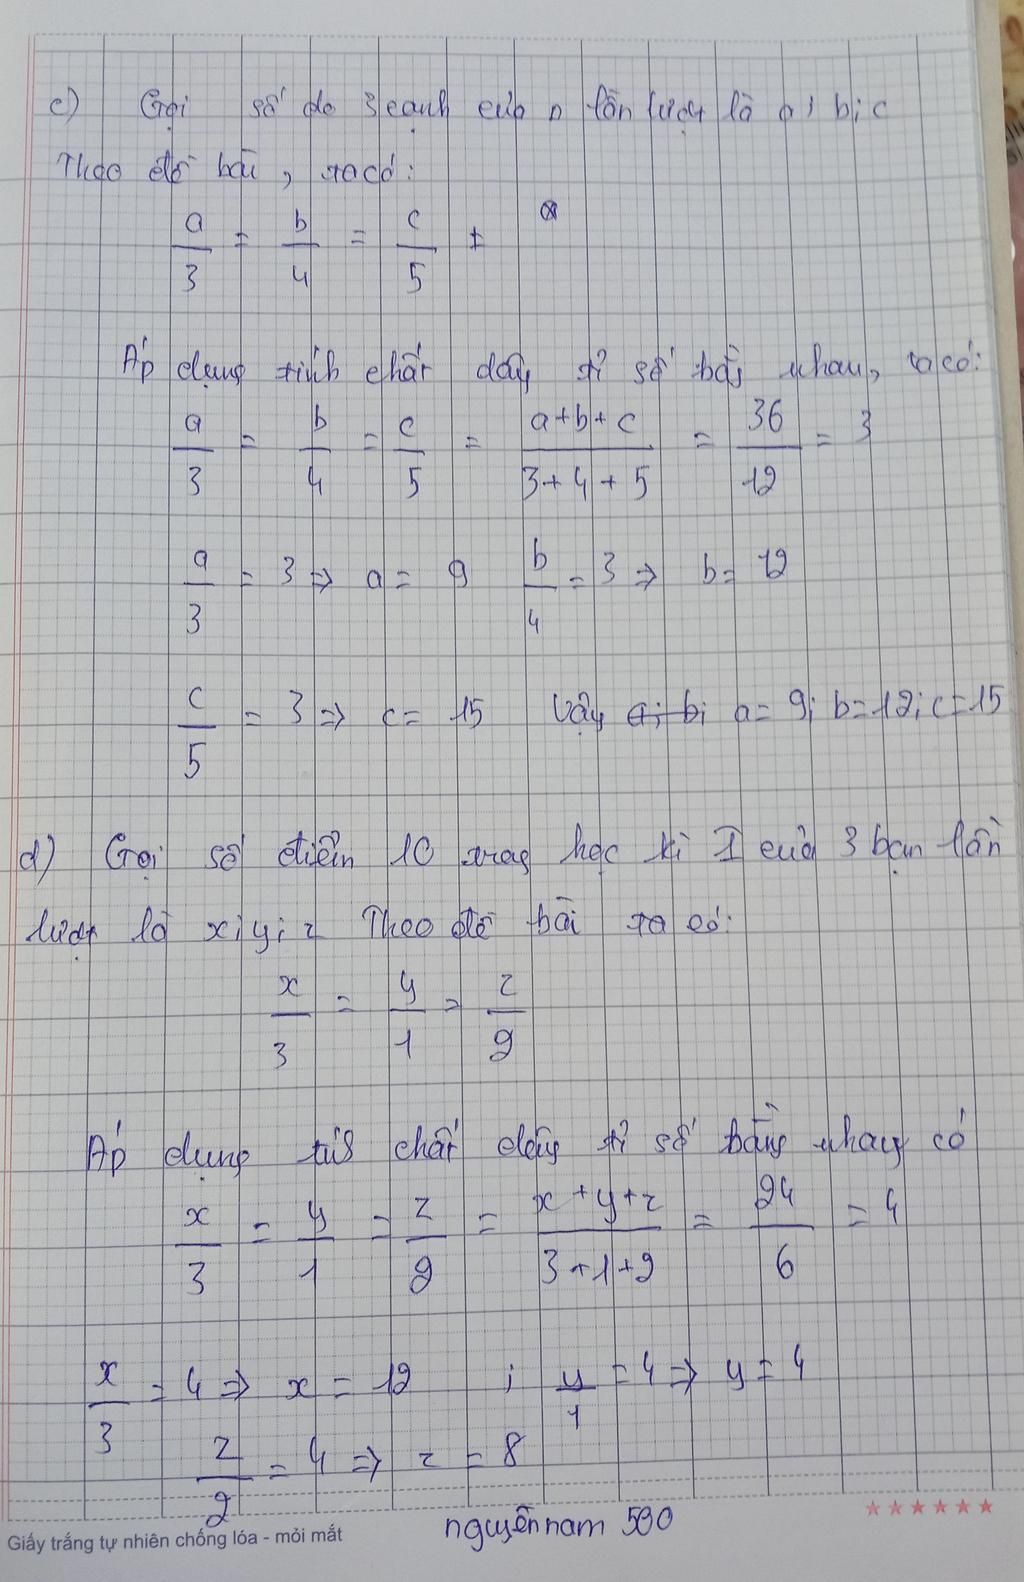 c) Gọi số đo 3 cạnh của Δ lần lượt là a; b; c
Theo đề bài, ta có:
a/3 = b/4 = c/5
Áp dụng tính chất dãy tỉ số bằng nhau, ta có:
a/3 = b/4 = c/5 = a+b+c/3+4+5 = 36/12 = 3
a/3 = 3 => a = 9 b/4 = 3 => b = 12
c/5 = 3 => c = 15 Vậy a; b; a = 9; b = 12; c = 15
d) Gọi số điểm 10 trong học kì I của 3 bạn lần
lượt là x; y; z Theo đề bài ta có:
x/3 = y/1 = z/2
Áp dụng tính chất dãy tỉ số bằng nhau có
x/3 = y/1 = z/2 = x+y+z/3+1+2 = 24/6 = 4
x/3 = 4 => x = 12 ; y/1 = 4 => y = 4
z/2 = 4 => z = 8
Giấy trắng tự nhiên chống lóa - mỏi mắt
nguyễn nam 590